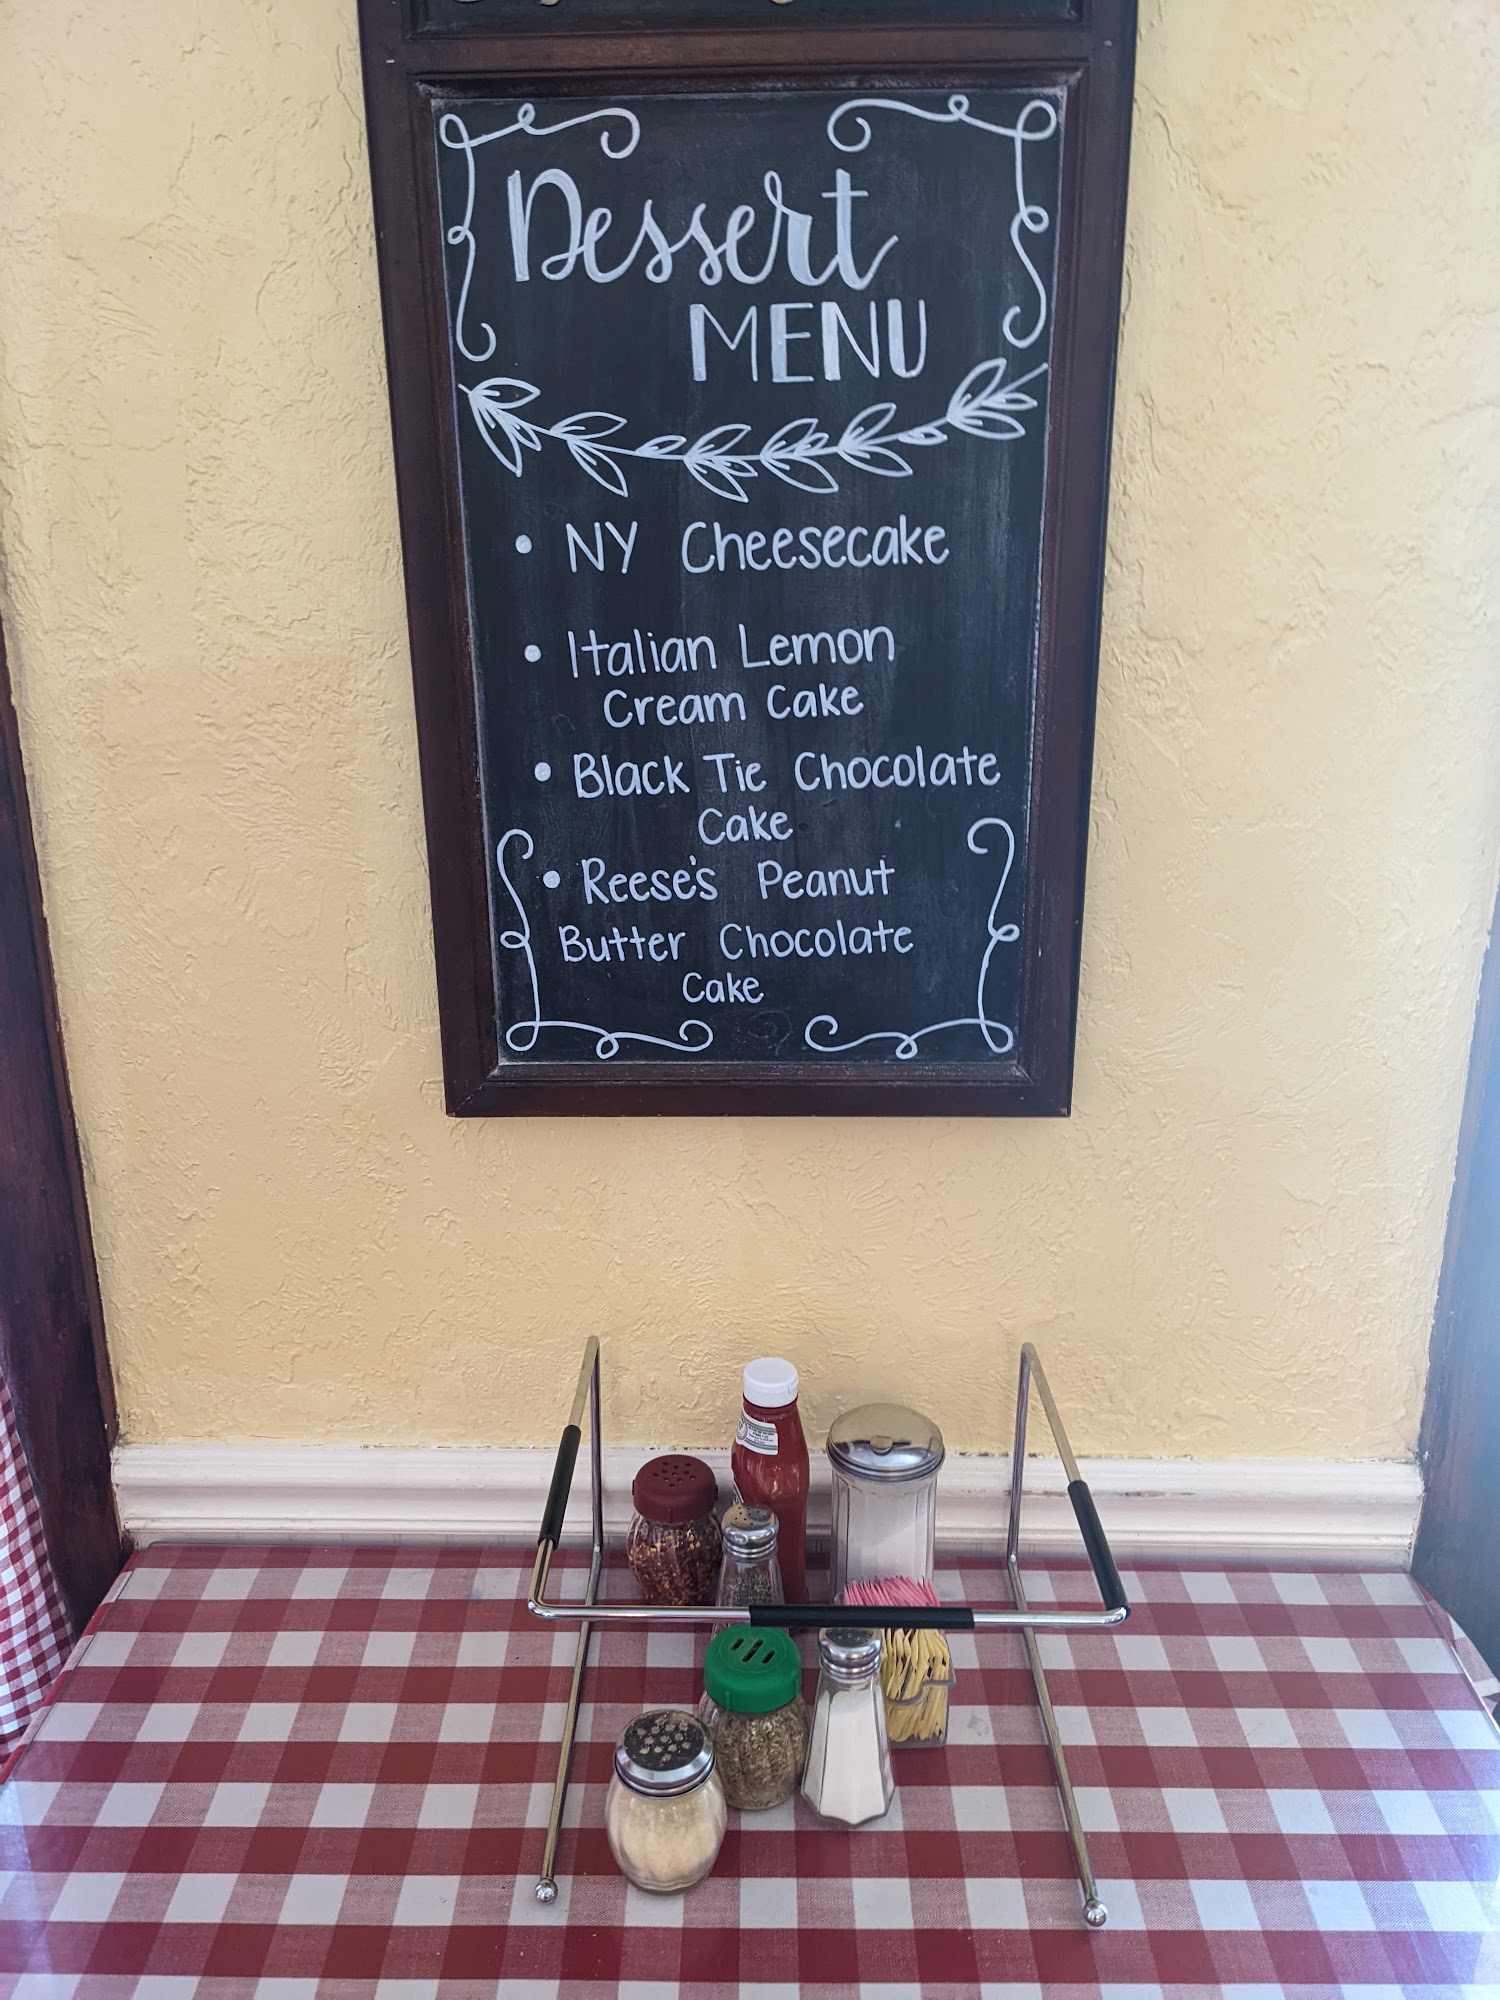 Dessert
MENU
• NY Cheesecake
• Italian Lemon
Cream Cake
• Black Tie Chocolate
Cake
• Reese's Peanut
Butter Chocolate
Cake